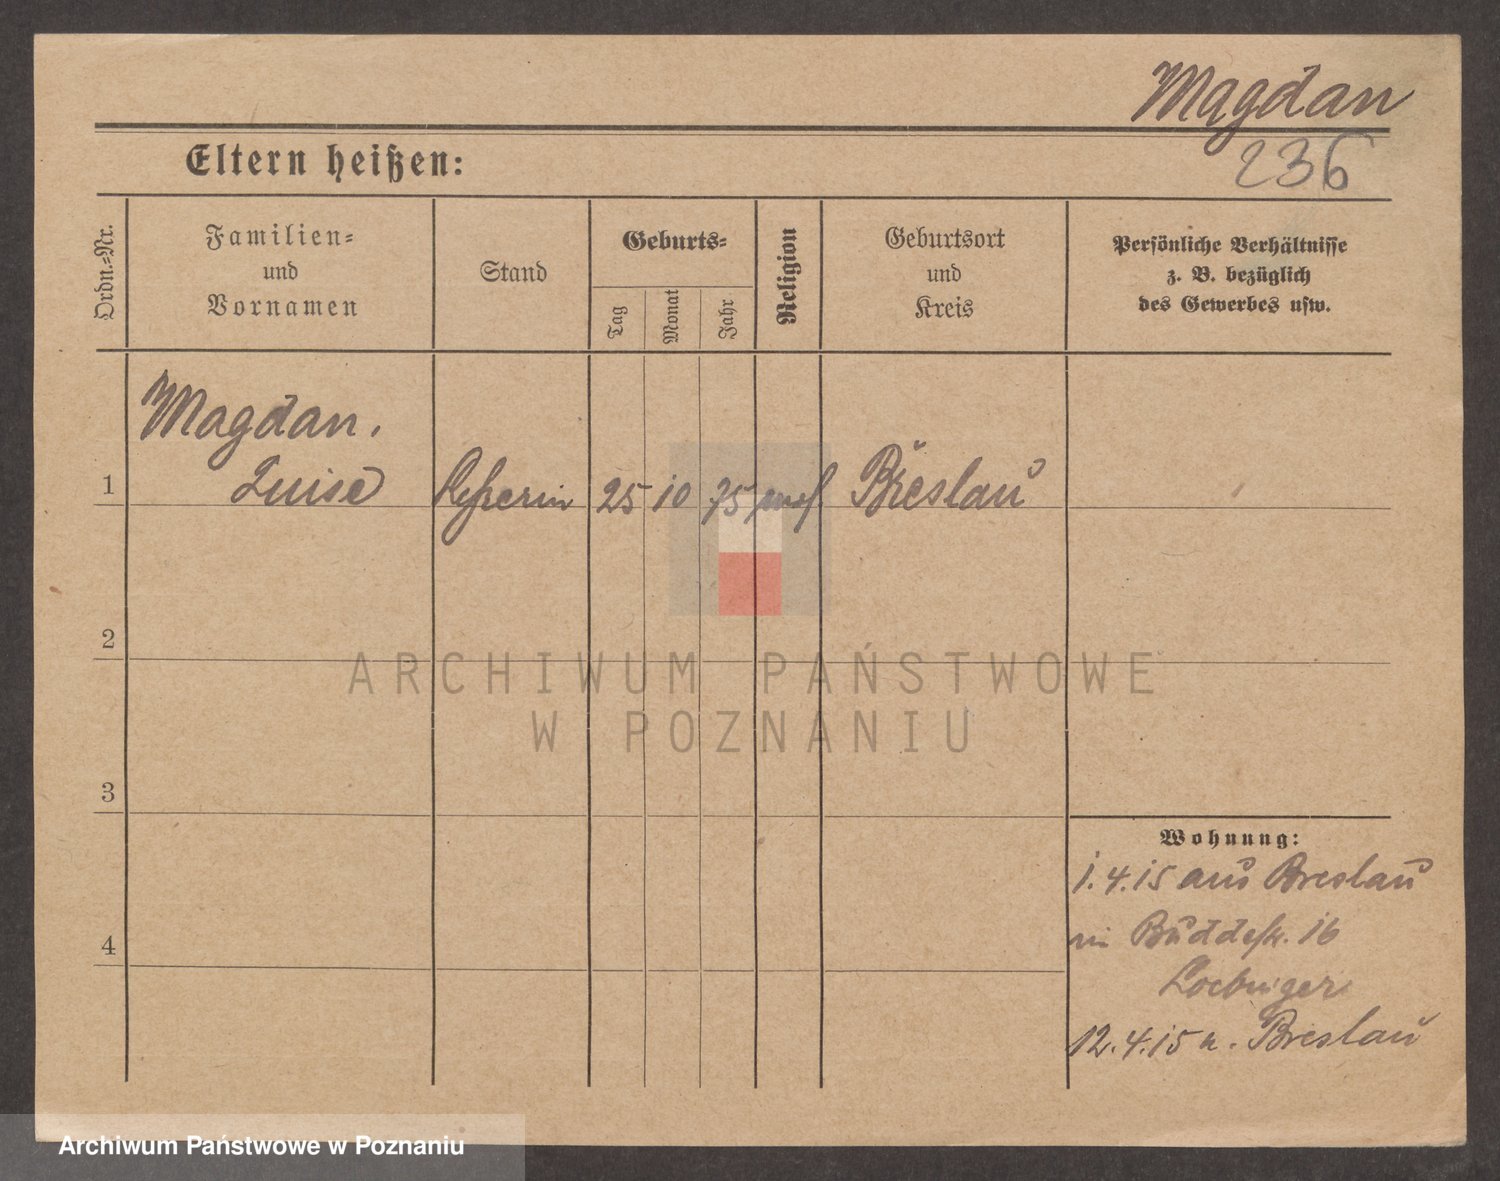 Magdan
236
Eltern heißen:
Ordn.-Nr.
Familien-
und
Vornamen
Stand
Geburts-
Tag
Monat
Jahr
Religion
Geburtsort
und
Kreis
Persönliche Verhältnisse
z. B. bezüglich
des Gewerbes usw.
Magdan,
1 Luise Lehrerin 25 10 75 Breslau
2
3
4
Wohnung:
1. 4. 15 aus Breslau
in Buddestr. 16
12. 4. 15 n. Breslau
ARCHIWUM PAŃSTWOWE
W POZNANIU
Archiwum Państwowe w Poznaniu